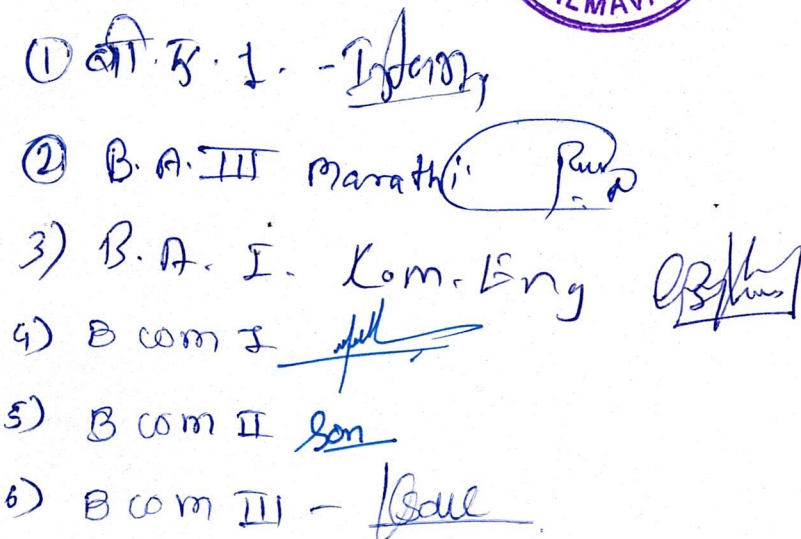 ① बी.ए. 1. -
② B. A. III Marathi
3) B. A. I. Kom. Eng
4) B com I
5) B com II Son
6) B com III -